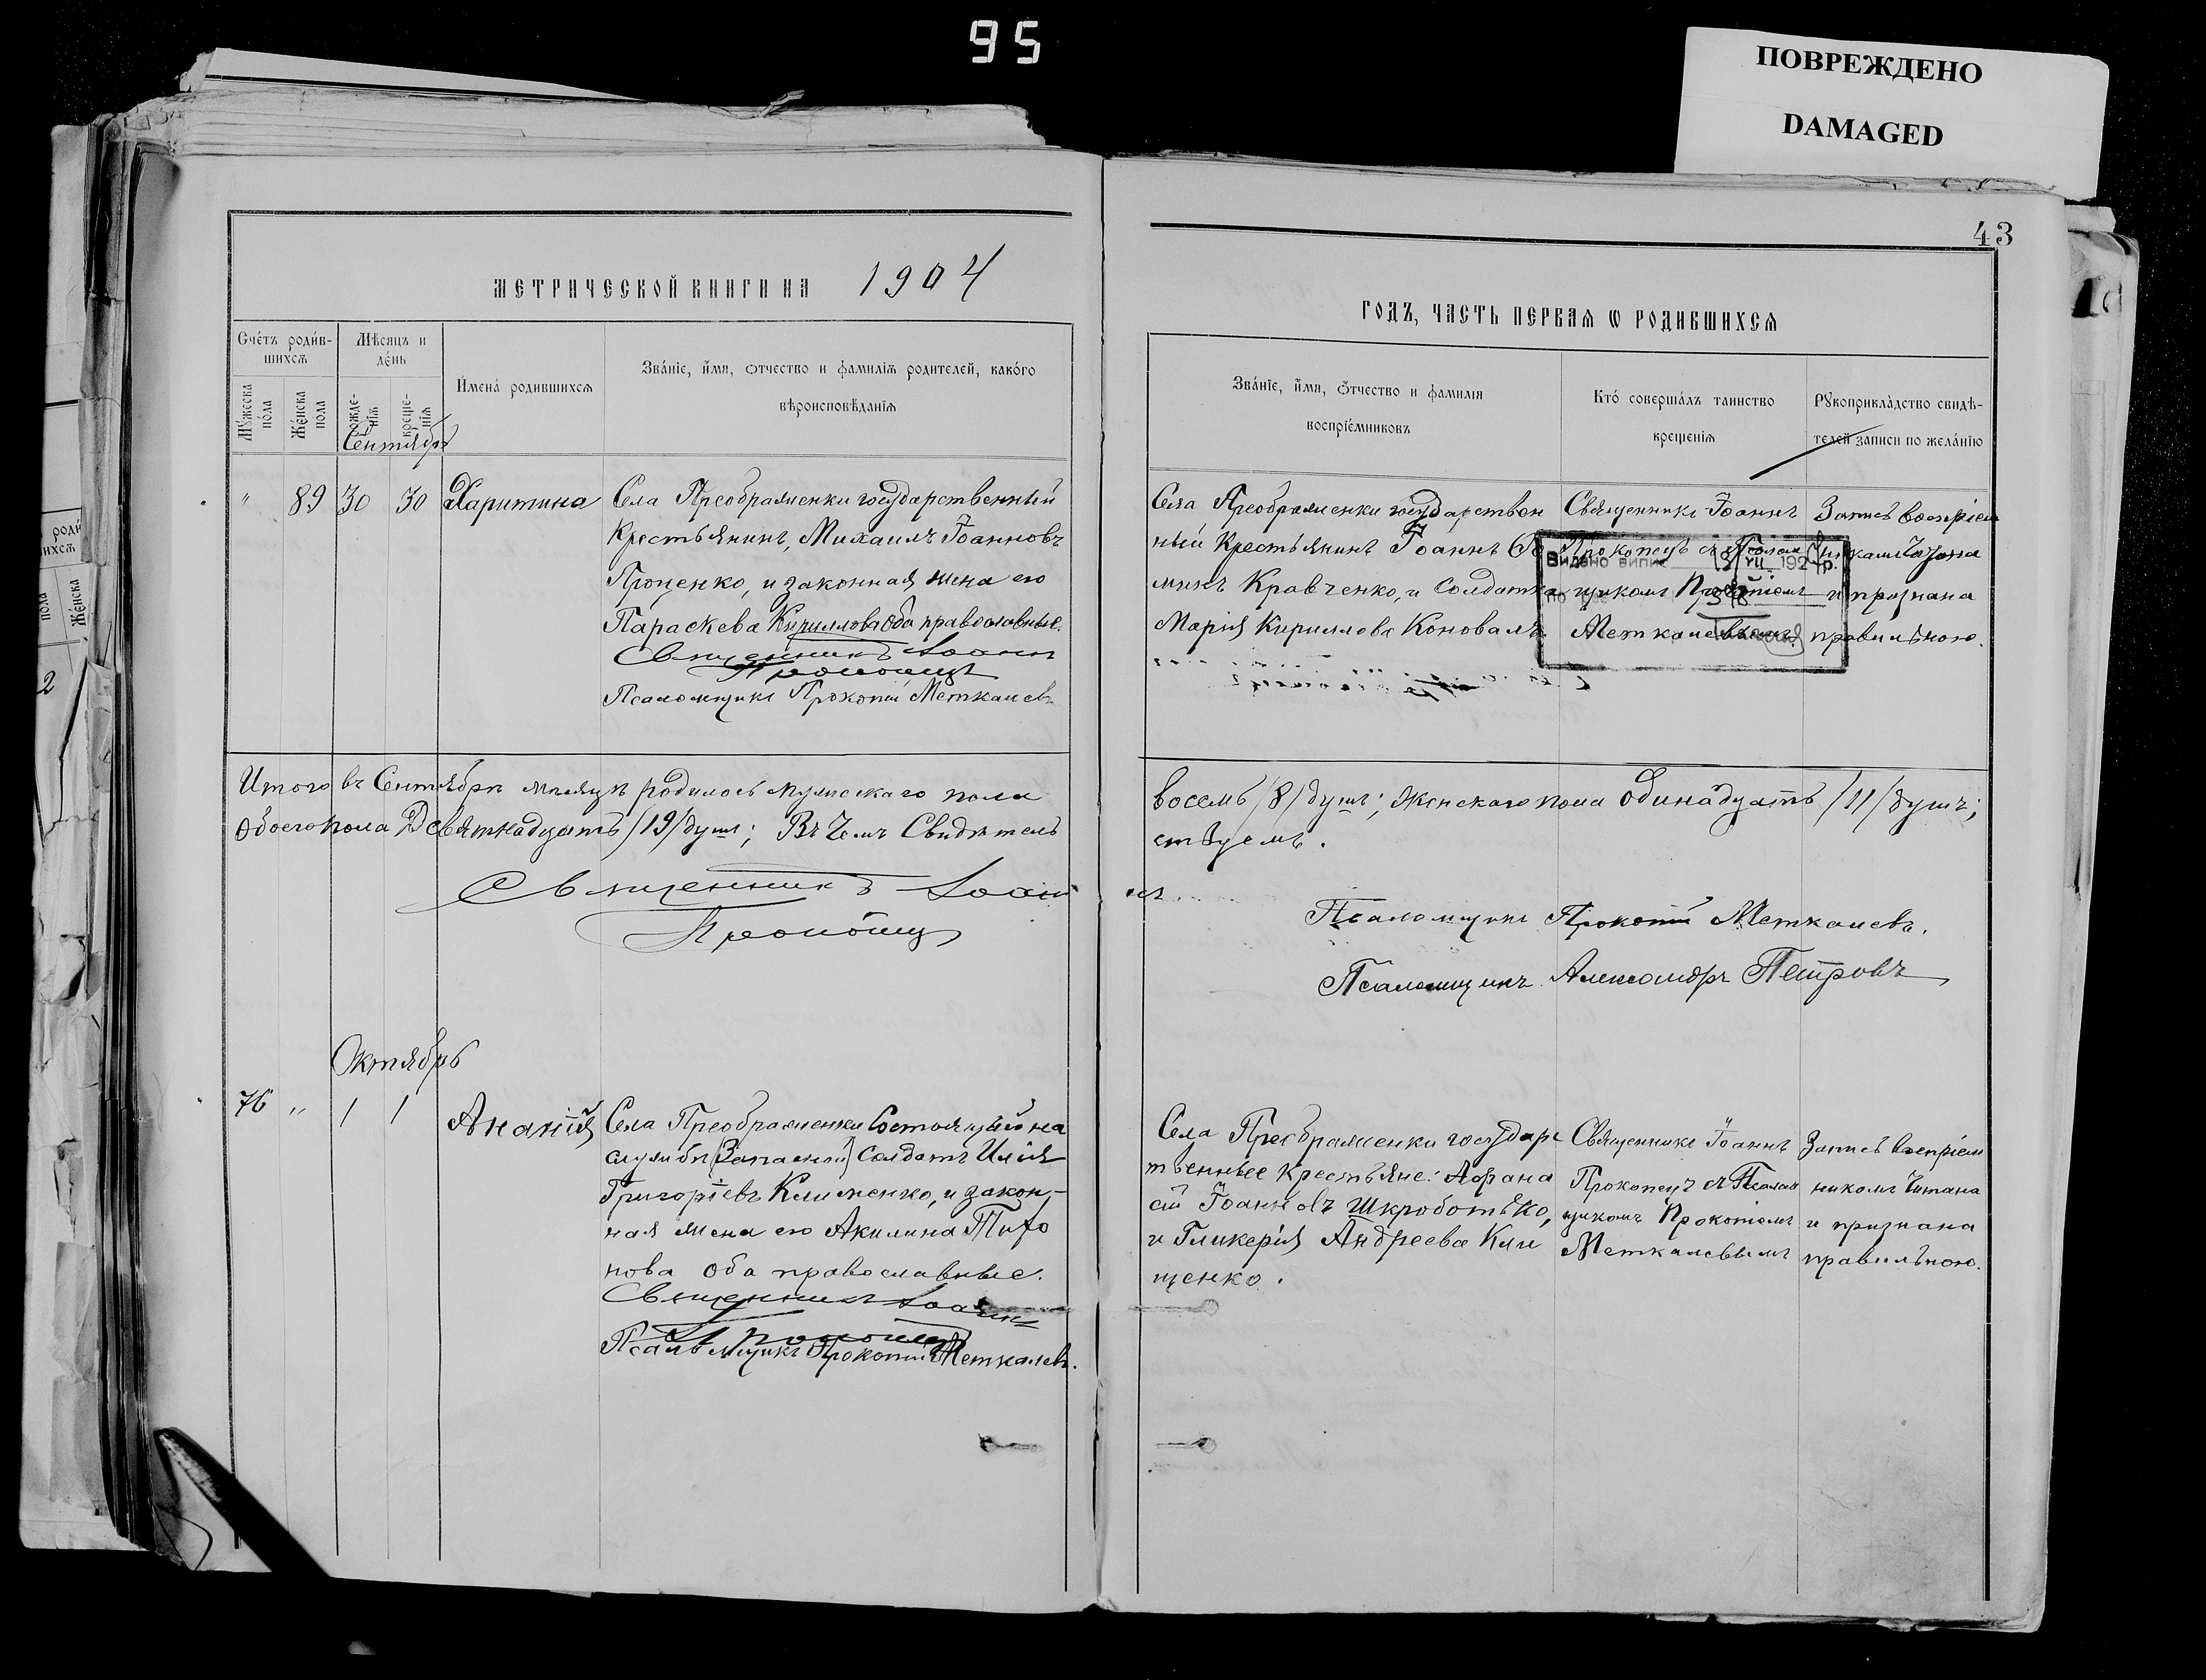 95
ПОВРЕЖДЕНО
DAMAGED
43
МЕТРИЧЕСКОЙ КНИГИ НА 1904
ГОДЪ, ЧАСТЬ ПЕРВАЯ Ѡ РОДИВШИХСЯ
Сче́тъ роди́в-
шихсѧ
Мѣсяцъ и
де́нь
Мꙋ́жеска
по́ла
Же́нска
пола
рожде-
нїѧ
креще-
нїѧ
И҆мена̀ родившихсѧ
Зва́нїе, и҆́мя, ѻтчество и фамилїѧ родителей, како́го
вѣроисповѣ́данїѧ
Зва́нїе, и҆́мя, ѻтчество и фамилїя
воспрїе́мниковъ
Кто́ соверша́лъ таинство
крещенїѧ
Рꙋкоприкла́дство свидѣ-
телей записи по жела́нїю
Сентябрь
" 89 30 30 Харитина
Села Преображенки государственный
Крестьянинъ, Михаилъ Іоанновъ
Проценко, и законная жена его
Параскева Кириллова оба православные.
Священникъ Іоаннъ
Прокопецъ
Псаломщикъ Прокопій Меткалевъ
Села Преображенки государствен
ный Крестьянинъ Іоаннъ
Кравченко, и Солдатка
Марія Кириллова Коновалъ
Священникъ Іоаннъ
Прокопецъ съ Псалом
щикомъ Прокопіемъ
Меткалевымъ
Запись воспріем
никами Читана
и признана
правильною.
Видано випис 192 р.
Итого въ Сентябрѣ мѣсяцѣ родилось мужескаго пола
восемь /8/ душъ; Женскаго пола Одинадцать /11/ душъ;
Обоего пола Девятнадцать /19/ душъ; Въ чемъ Свидѣтель
ствуемъ.
Священникъ Іоаннъ
Прокопецъ
Псаломщикъ Прокопій Меткалевъ.
Псаломщикъ Александръ Петровъ
Октябрь
76 " 1 1 Ананій
Села Преображенки Состоящий на
службѣ (Запасной) Солдатъ Илія
Григоріевъ Клименко, и закон-
ная жена его Акилина Тихо
нова оба православные.
Священникъ Іоаннъ
Прокопецъ
Псаломщикъ Прокопій Меткалевъ.
Села Преображенки государс
твенные крестьяне: Афана
сій Іоанновъ Шкроботько,
и Гликерія Андреева Кли
щенко.
Священникъ Іоаннъ
Прокопецъ съ Псалом
щикомъ Прокопіемъ
Меткалевымъ
Запись воспріем
никомъ Читана
и признана
правильною.
роди
ихсѧ
пола
Же́нска
2